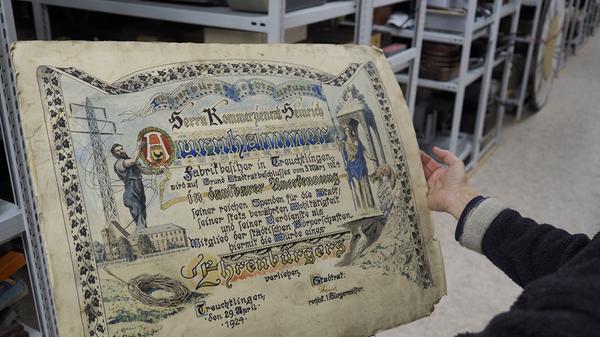 Ehrenbürger-Urkunde
Herrn Kommerzienrat Heinrich
Aurnhammer
Fabrikbesitzer in Treuchtlingen
wird auf Grund Stadtratbeschlusses vom 7. März 1924
in dankbarer Anerkennung
seiner reichen Spenden für die Stadt
seiner stets bewährten Mildtätigkeit
und seiner Verdienste als
Mitglied der städtischen Körperschaften
hiermit die Würde eines
Ehrenbürgers
verliehen.
Treuchtlingen,
den 29. April
1924.
Stadtrat:
rechtsk. 1. Bürgermeister.